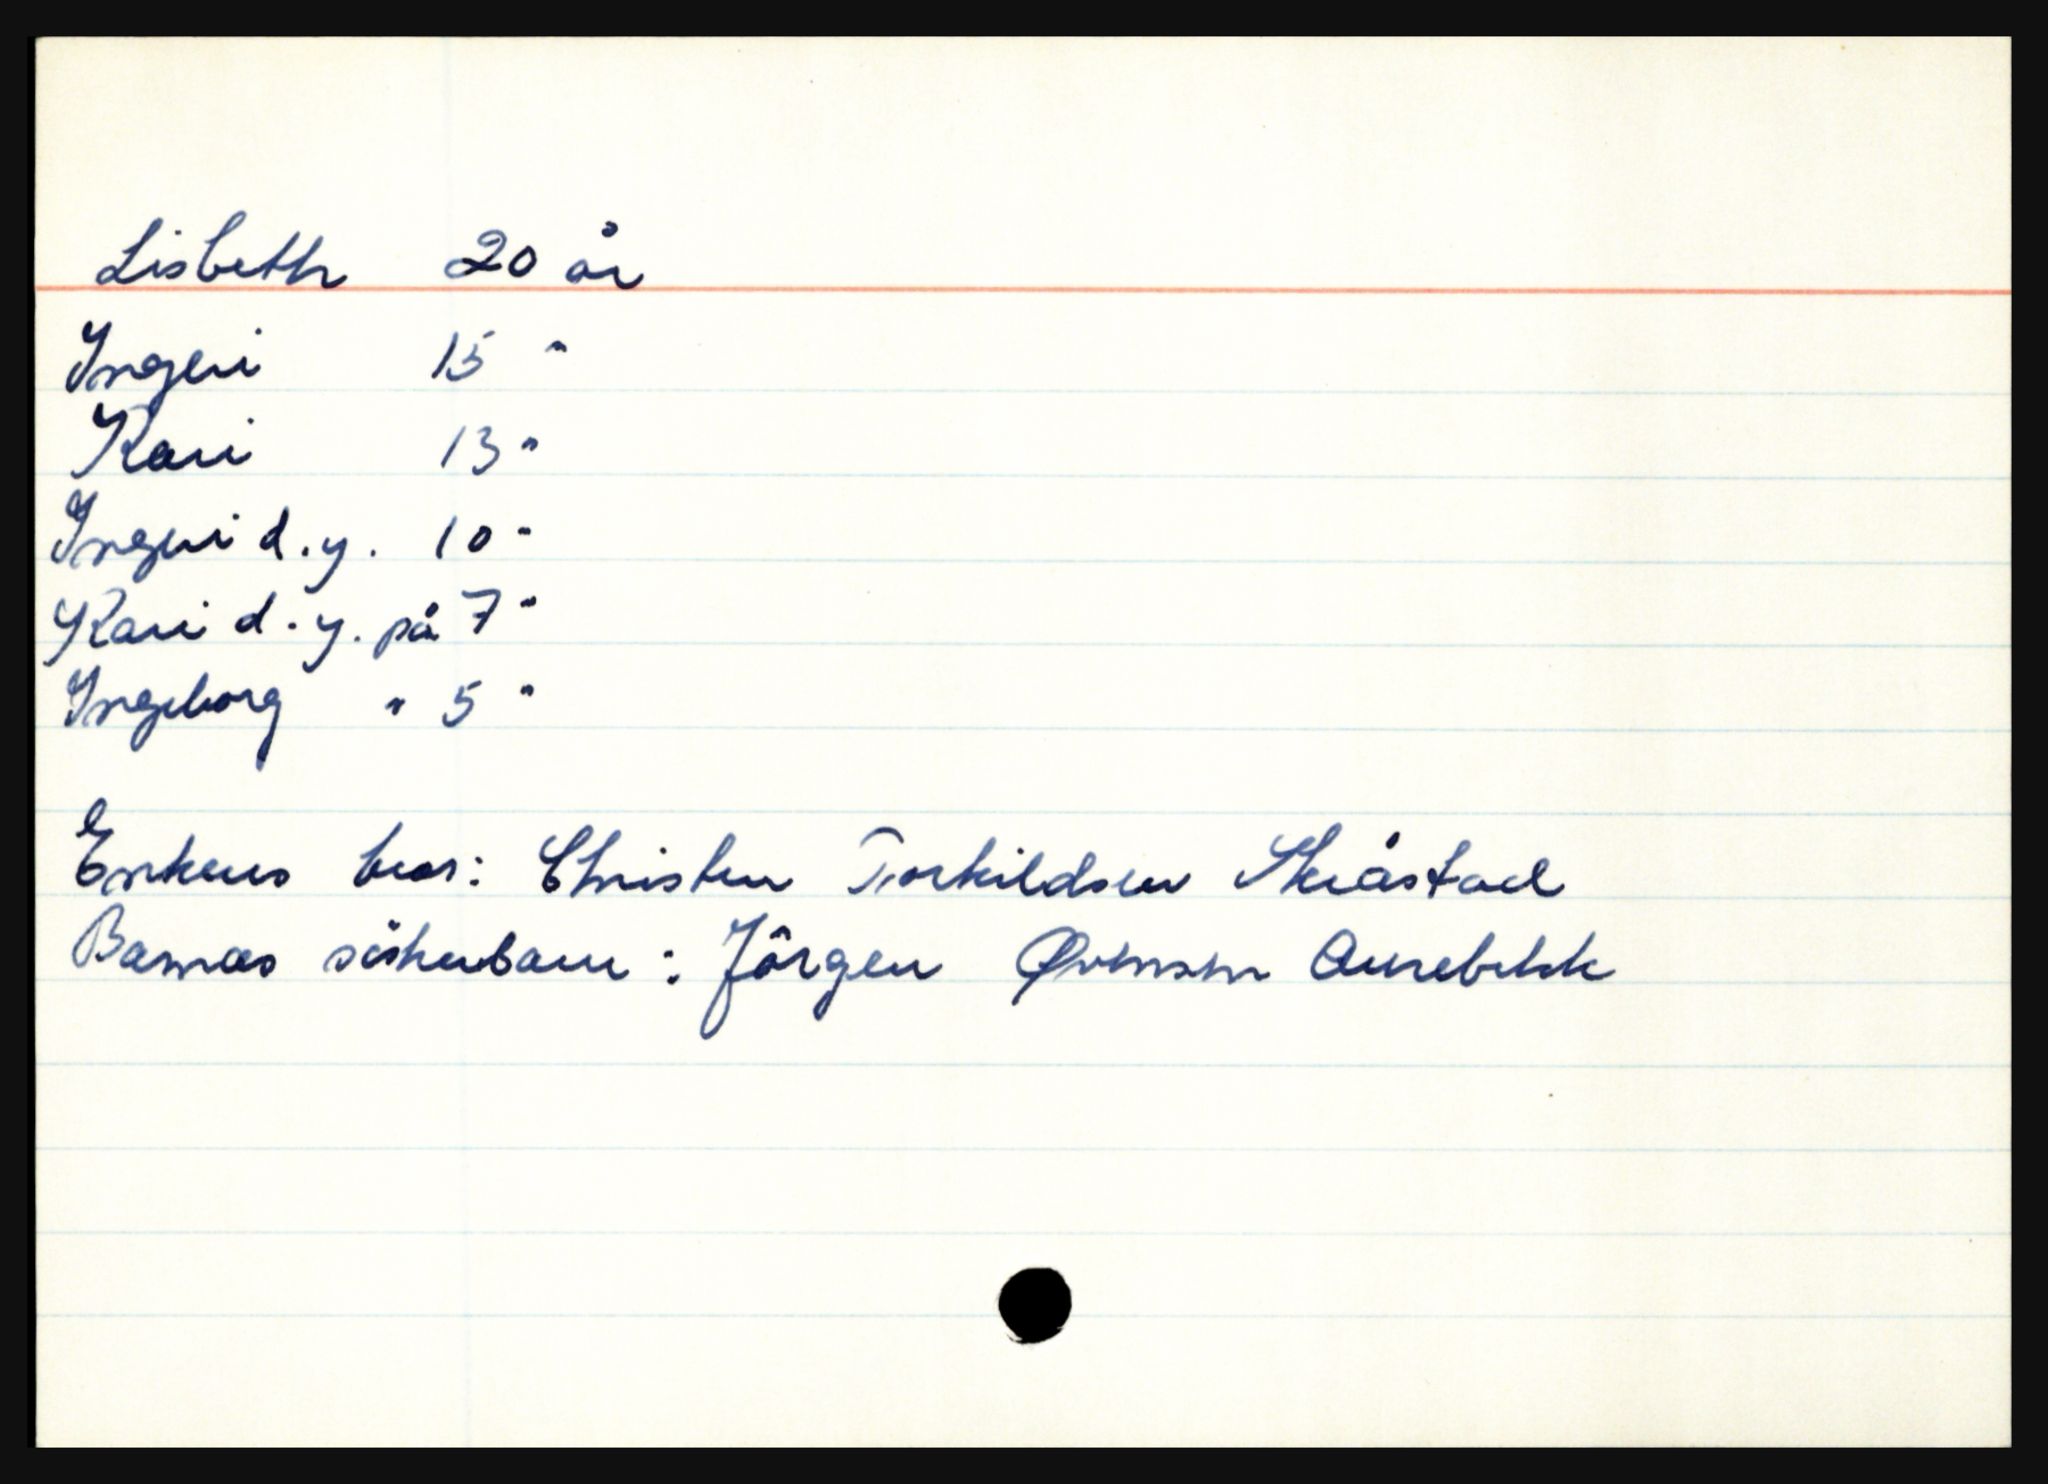 Lisbeth 20 år
Ingeri 15 "
Kari 13 "
Ingeri d.y. 10 "
Kari d.y. på 7 "
Ingeborg " 5 "
Enkens bror: Christen Torkildsen Skråstad
Barnas söskenbarn: Jörgen Ørensen Aurebekk